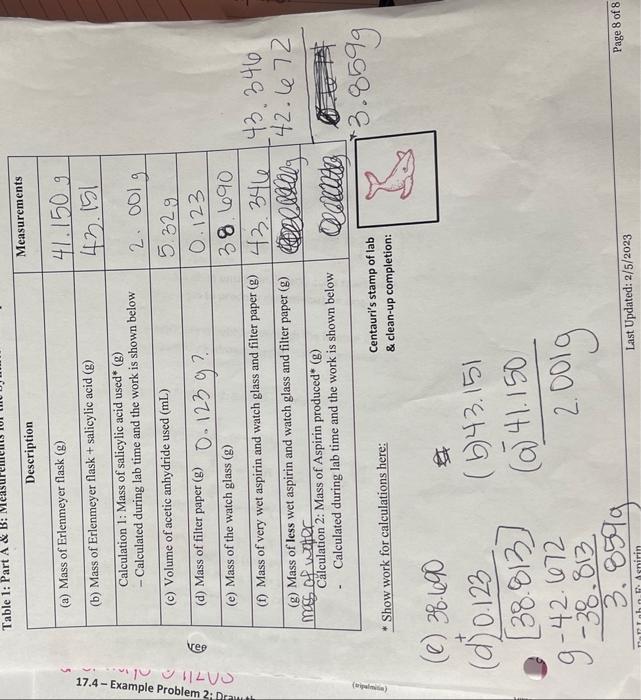 Table 1: Part A & B: Measurements for the
Description Measurements
(a) Mass of Erlenmeyer flask (g) 41.150 g
(b) Mass of Erlenmeyer flask + salicylic acid (g) 43.151
Calculation 1: Mass of salicylic acid used* (g)
– Calculated during lab time and the work is shown below
2.001 g
(c) Volume of acetic anhydride used (mL) 5.32 g
(d) Mass of filter paper (g) 0.123 g? 0.123
(e) Mass of the watch glass (g) 38.690
(f) Mass of very wet aspirin and watch glass and filter paper (g) 43.346
(g) Mass of less wet aspirin and watch glass and filter paper (g)
mass of water
Calculation 2: Mass of Aspirin produced* (g)
- Calculated during lab time and the work is shown below
43.346
-42.672
3.859g
* Show work for calculations here:
Centauri's stamp of lab
& clean-up completion:
(e) 38.690
(d) + 0.123
[38.813]
g - 42.672
- 38.813
3.859g
(b) 43.151
(a) - 41.150
2.001g
Last Updated: 2/5/2023
Page 8 of 8
17.4 – Example Problem 2:
(tripalmitin)